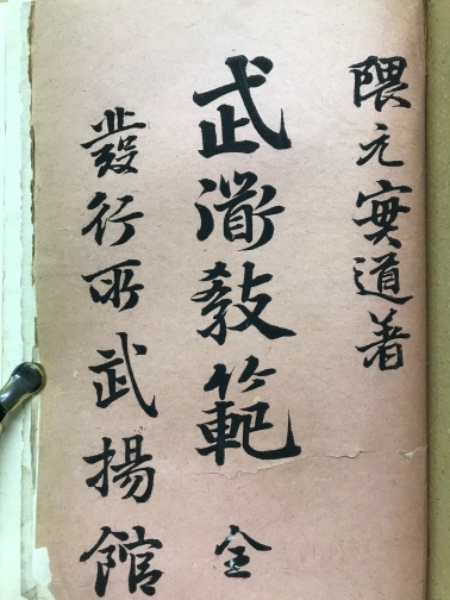 隈元實道著
武道教範 全
發行所武揚館